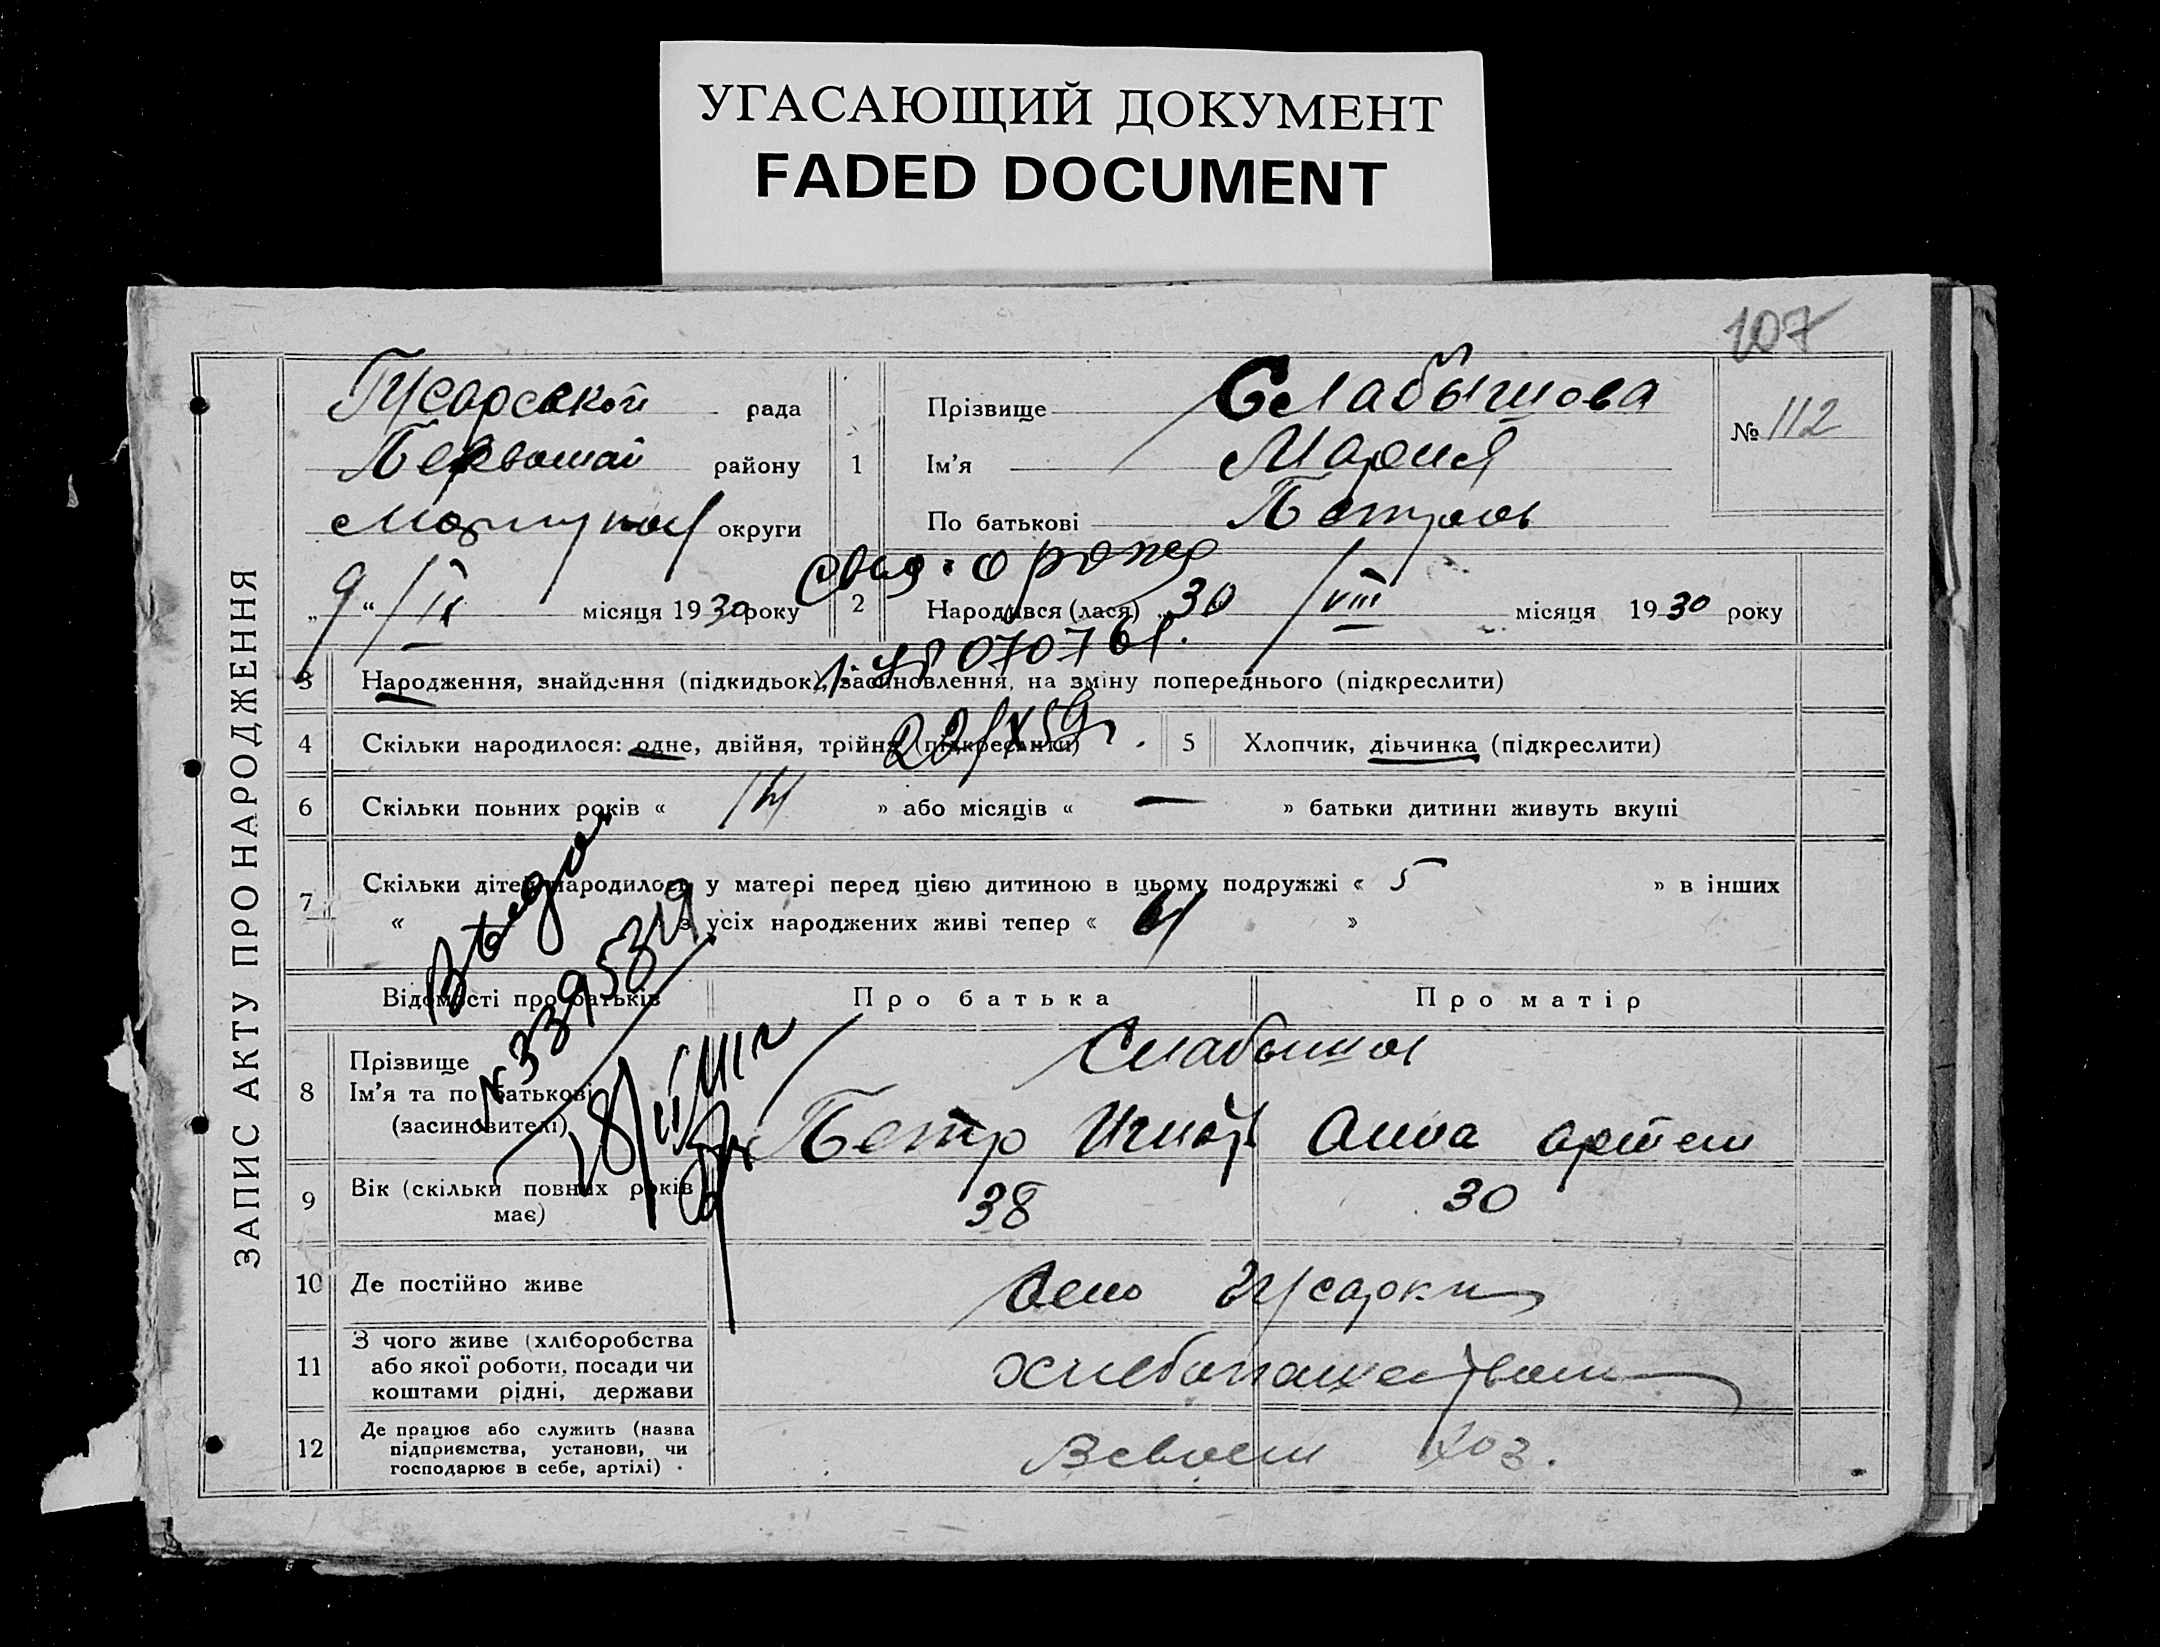 УГАСАЮЩИЙ ДОКУМЕНТ
FADED DOCUMENT
107
ЗАПИС АКТУ ПРО НАРОДЖЕННЯ
Гусарской рада
Первомай району
округи
„9“ /IX місяця 1930 року
1 Прізвище Слабышова
Ім'я Мария
По батькові Петров
№ 112
свид. о рожд
2 Народився (лася) „30 /VIII місяця 1930 року
070761
3 Народження, знайдення (підкидьок), засиновлення, на зміну попереднього (підкреслити)
22/X 59г
4 Скільки народилося: одне, двійня, трійня (підкреслити)
5 Хлопчик, дівчинка (підкреслити)
6 Скільки повних років « 14 » або місяців « — » батьки дитини живуть вкупі
7 Скільки дітей народилось у матері перед цією дитиною в цьому подружжі « 5 » в інших
« з усіх народжених живі тепер « 4 »
Выдан
№ 3395319
Відомості про батьків Про батька Про матір
8 Прізвище
Ім'я та по батькові
(засиновителі)
Слабышов
Петр Игнат Анна Артем
9 Вік (скільки повних років
має) 38 30
10 Де постійно живе Село Гусарки
11 З чого живе (хліборобства
або якої роботи, посади чи
коштами рідні, держави
Хлебопашеством
12 Де працює або служить (назва
підприємства, установи, чи
господарює в себе, артілі)
В своем хоз.